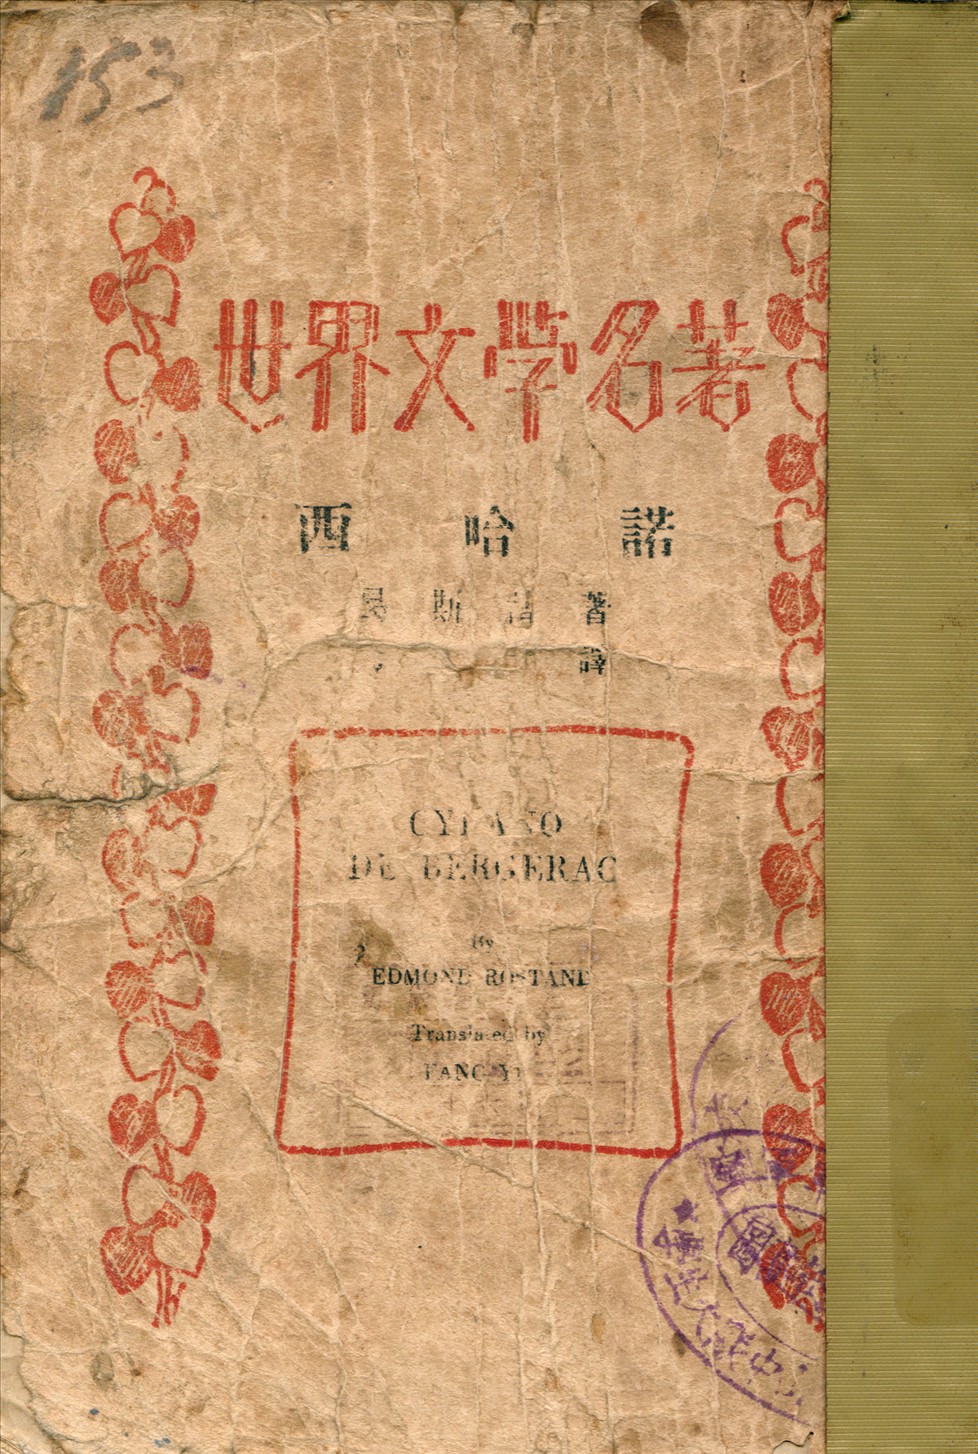 153
世界文學名著
西哈諾
斯 著
譯
CYRANO
DE BERGERAC
By
EDMOND ROSTAND
Translated by
FANG YU